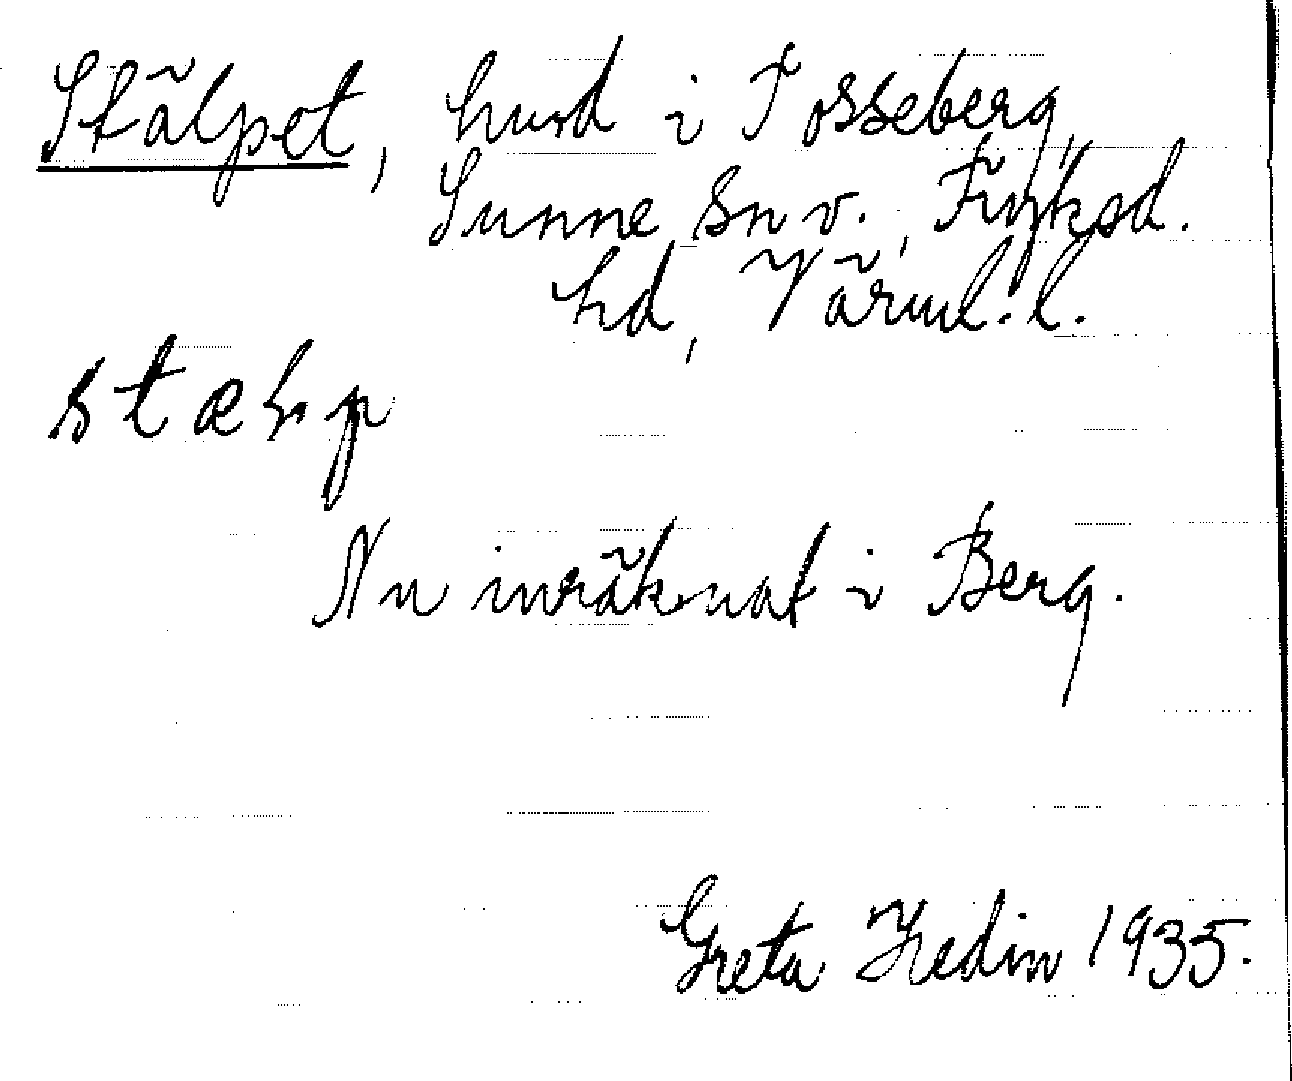 Stälpet, hmd i Tosseberg,
Sunne sn v., Fryksd.
hd, Värml. l.
stæ p
Nu inräknat i Berg.
Greta Hedin 1935.